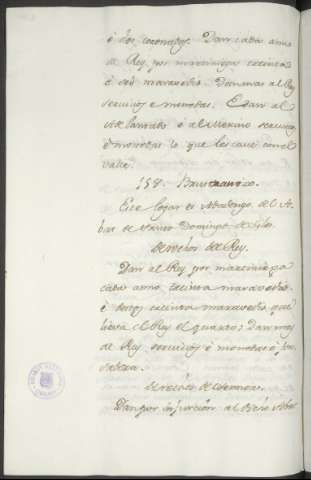 ó dos toconudos. Dan cada anno
al Rey por martiniega treinta
é seis maravedis. Danmas al Rey
servicios é monedas. E dan al
Adelantado ó al Merino servicios
é monedas lo que les cave con el
valle.
158.
Este Logar es Abadengo de el A-
bat de Santo Domingo de Silos.
Derechos del Rey.
Dan al Rey por martiniega
cada anno treinta maravedis
é destos treinta maravedis que
lieva el Rey el quarto; Dan mas
al Rey servicios é monedas é fon-
sadera.
Derechos de
Dan por infurcion al dicho Abat